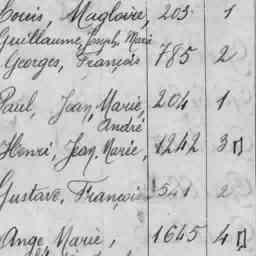 Louis, Magloire, 203 1
Guillaume, Joseph, Marie
Georges, François 785 2
Paul, Jean, Marie, 204 1
André
Henri, Jean, Marie, 1242 3
Gustave, François 541 2
Ange, Marie, 1645 4